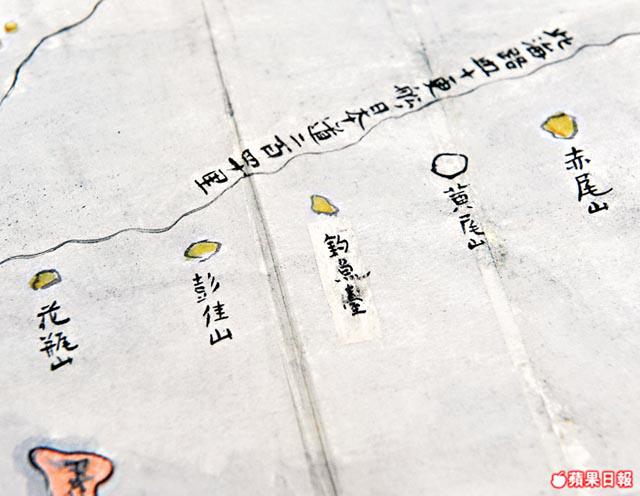 北海路四十二更船,日本道二百四十里
赤尾山
黄尾山
釣魚臺
彭佳山
花瓶山
蘋果日報